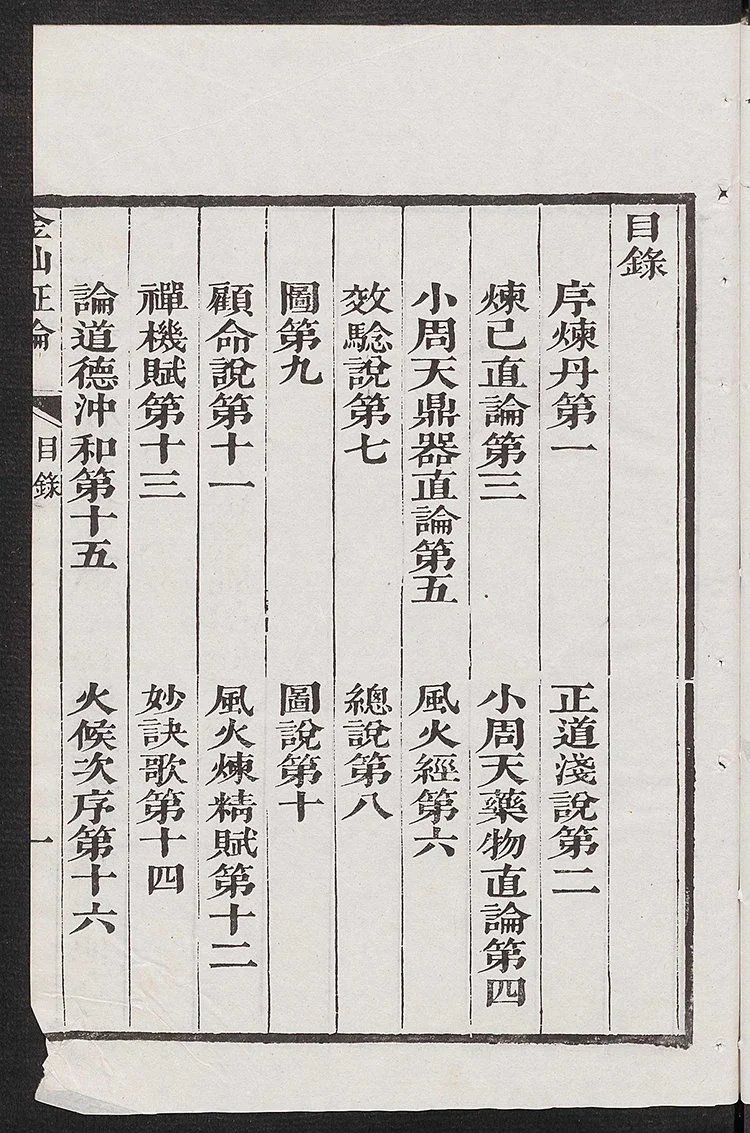 目錄
序煉丹第一
正道淺說第二
煉己直論第三
小周天藥物直論第四
小周天鼎器直論第五
風火經第六
效騐說第七
總說第八
圖第九
圖說第十
顧命說第十一
風火煉精賦第十二
禪機賦第十三
妙訣歌第十四
論道德沖和第十五
火候次序第十六
金山正論
目錄
一